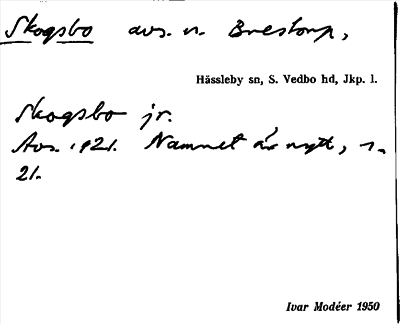 Skogsbo avs. u. Brestorp,
Hässleby sn, S. Vedbo hd, Jkp. l.
Skogsbo jr.
Avs. 1921. Namnet är nytt,
21.
Ivar Modéer 1950